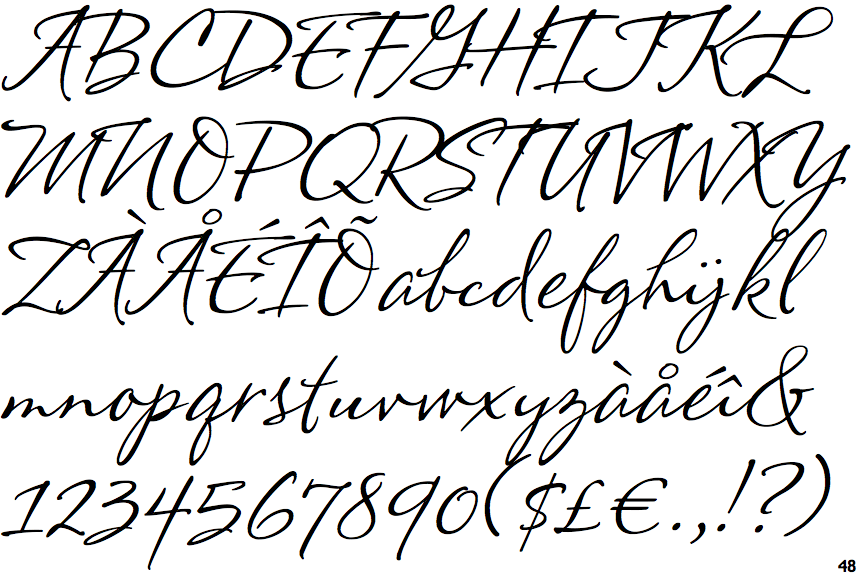 ABCDEFGHIJKL
MNOPQRSTUVWXY
ZÀÅÉÎÕabcdefghijkl
mnopqrstuvwxyzàåéî&
1234567890($£€.,!?)
48